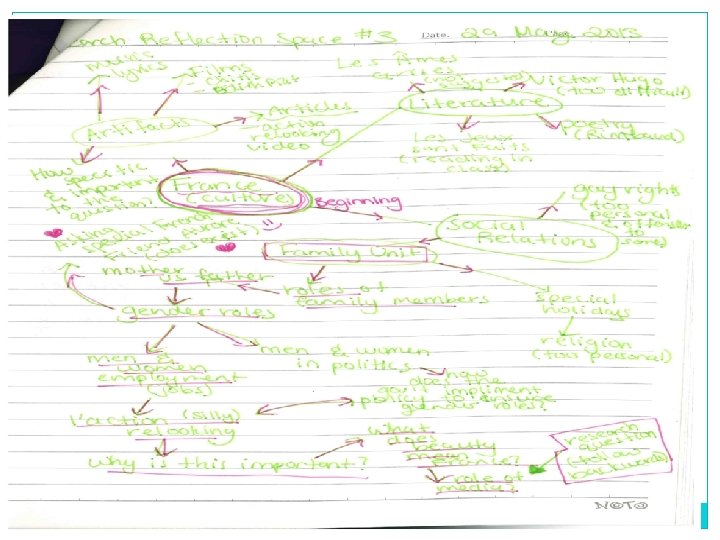 arch Reflection Space #3
Date. 29 May 2013
music
lyrics
Films
Artifacts
Articles
relooking
video
How
specific
& important
to this
question?
Les Âmes
Victor Hugo
(too difficult)
Literature
Les Jeux
sont Faits
(reading in
class)
poetry
(Rimbaud)
France
(culture)
Beginning
gay rights
(too
personal
Social
Relations
Asking
special French
Friend
Family Unit
mother
vs father
roles of
family members
special
holidays
religion
(too personal)
gender roles
men &
women
employment
(jobs)
men & women
in politics
how
does the
gov't impliment
policy to ensure
gender roles?
l'action (silly)
relooking
why is this important?
what
does
beauty
mean
role of
media?
research
question
(follow
backwards)
NOTO